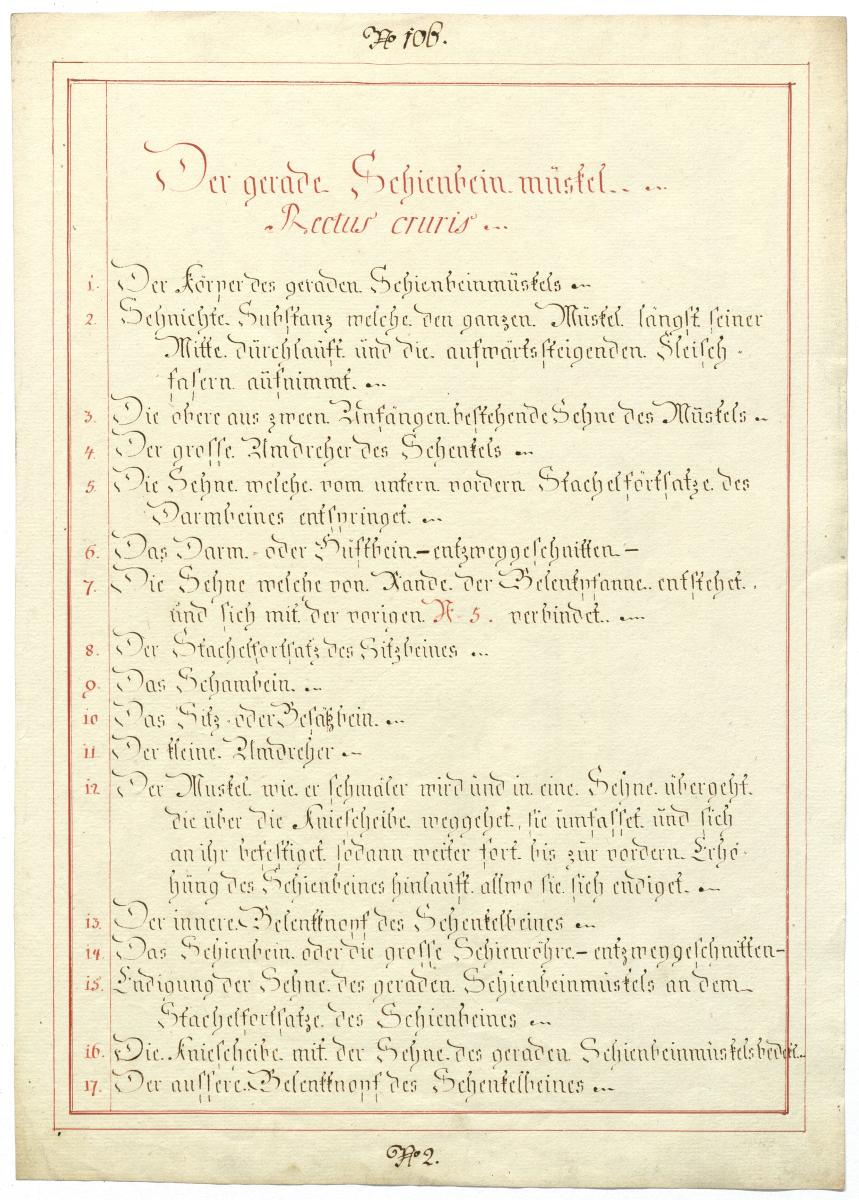 No 106.
Der gerade Schienbein müskel.
Rectus cruris
1. Der Körper des geraden Schienbeinmüskels
2. Sehnichte Substanz welche den ganzen Müskel längst seiner
Mitte dürchlauft und die aufwärtssteigenden Fleisch-
fasern aüfnimmt.
3. Die obere aus zween Anfängen bestehende Sehne des Müskels
4. Der grosse Umdreher des Schenkels
5. Die Sehne welche vom untern vordern Stachelförtsatze des
Darmbeines entspringet.
6. Das Darm- oder Hüftbein - entzweygeschnitten -
7. Die Sehne welche von Rande der Gelenkpfanne entstehet,
und sich mit der vorigen N. 5. verbindet.
8. Der Stachelfortsatz des Sitzbeines
9. Das Schambein.
10 Das Sitz- oder Gesäßbein.
11 Der kleine Umdreher
12 Der Muskel wie er schmäler wird und in eine Sehne übergeht.
die über die Kniescheibe weggehet, sie ümfasset und sich
an ihr befestiget sodann weiter fort bis zür vordern Erhö-
hüng des Schienbeines hinlaüft allwo sie sich endiget.
13. Der innere Gelenkknopf des Schenkelbeines
14. Das Schienbein oder die grosse Schienröhre - entzweygeschnitten-
15. Endigung der Sehne des geraden Schienbeinmüskels an dem
Stachelfortsatze des Schienbeines
16. Die Kniescheibe mit der Sehne des geraden Schienbeinmüskels bedekt.
17. Der aussere Gelenkknopf des Schenkelbeines
No 2.